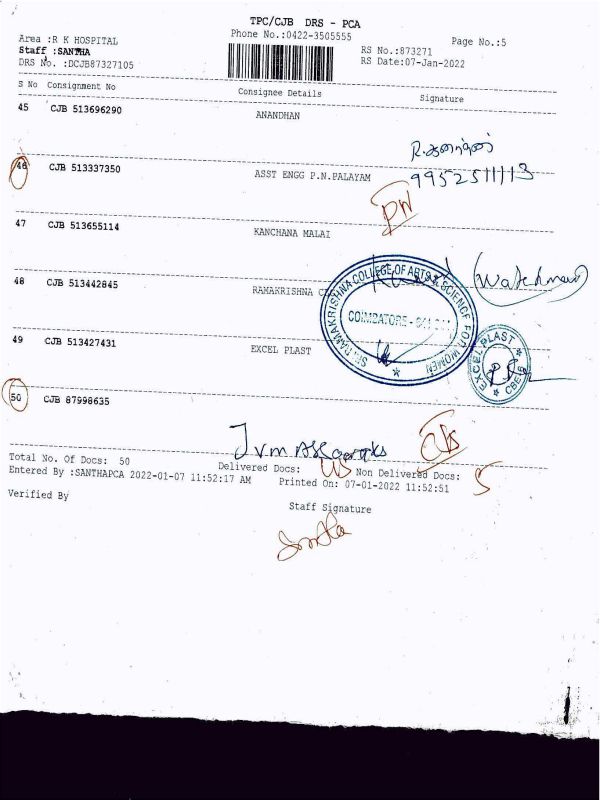 TPC/CJB DRS - PCA
Area :R K HOSPITAL
Phone No.:0422-3505555
Page No.:5
Staff :SANTHA
RS No.:873271
DRS No. :DCJB87327105
RS Date:07-Jan-2022
S No Consignment No Consignee Details Signature
45 CJB 513696290 ANANDHAN
9952511113
46 CJB 513337350 ASST ENGG P.N.PALAYAM
47 CJB 513655114 KANCHANA MALAI
(Watchman)
48 CJB 513442845 RAMAKRISHNA
SRI RAMAKRISHNA COLLEGE OF ARTS & SCIENCE FOR WOMEN
COIMBATORE
49 CJB 513427431 EXCEL PLAST
EXCEL PLAST
50 CJB 87998635
Total No. Of Docs: 50 Delivered Docs: 45 Non Delivered Docs: 5
Entered By :SANTHAPCA 2022-01-07 11:52:17 AM Printed On: 07-01-2022 11:52:51
Verified By
Staff Signature
Santha